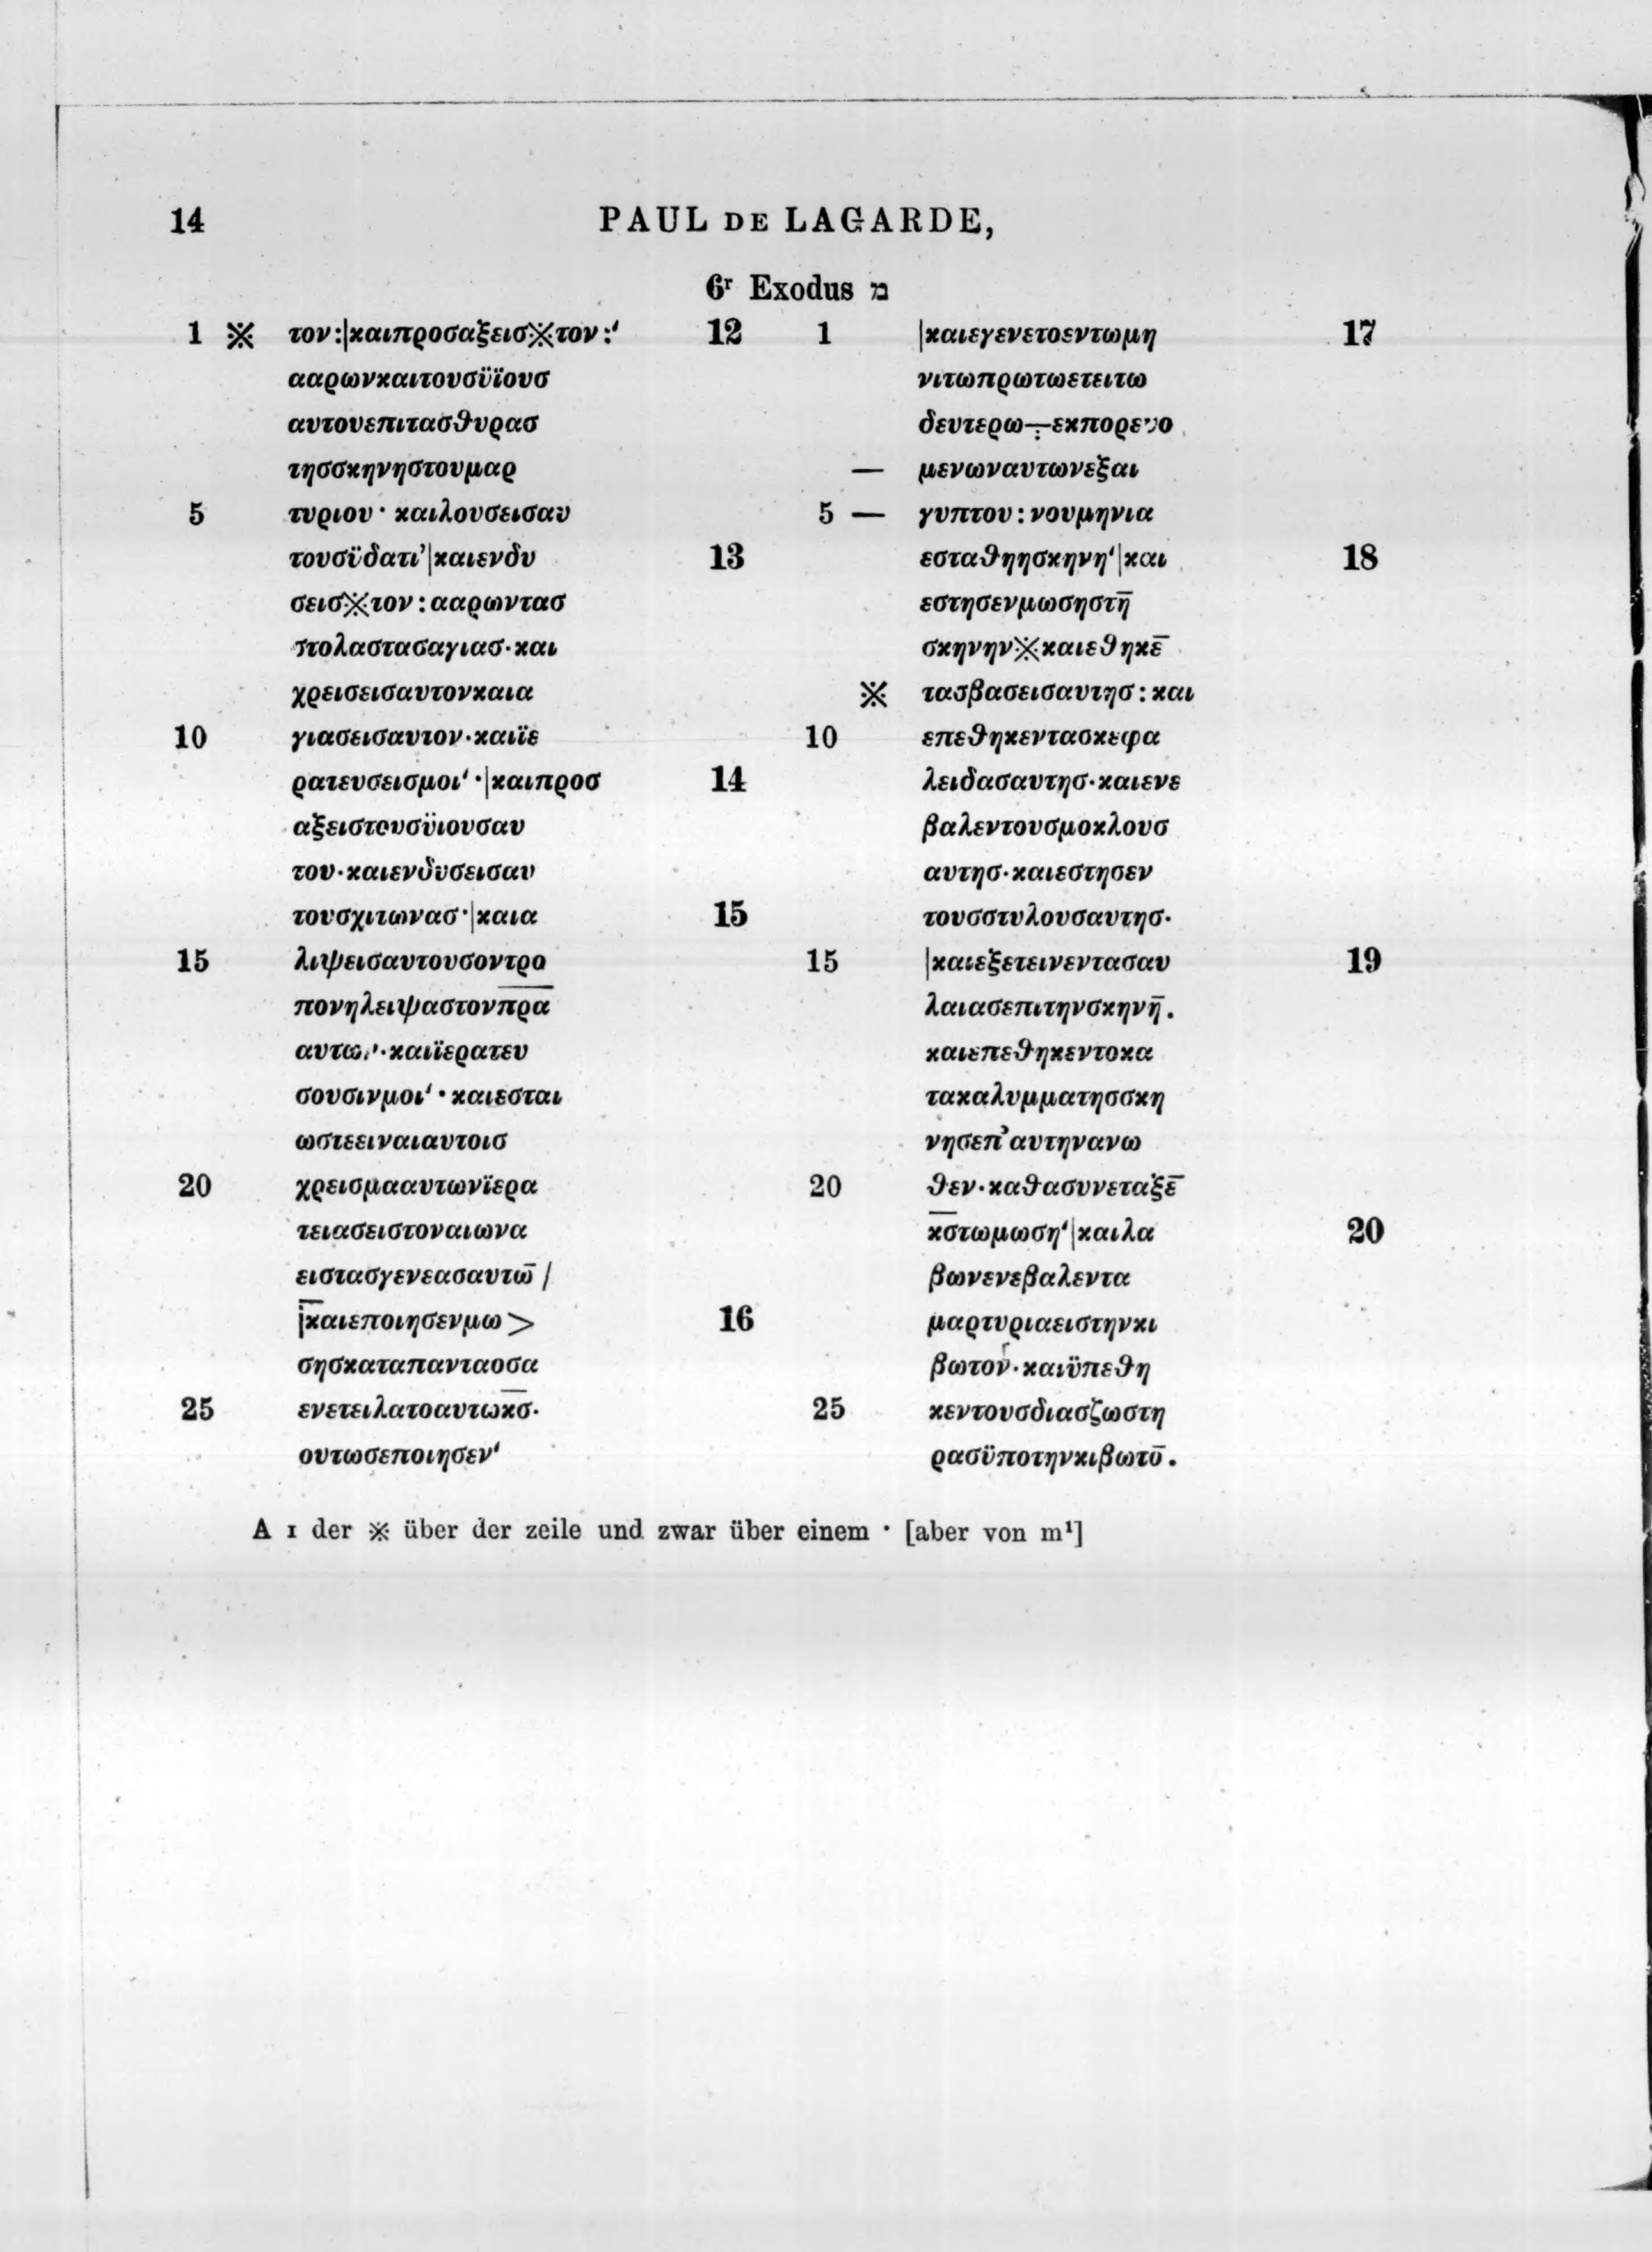 14
PAUL DE LAGARDE,
6r Exodus מ
1 ※ τον:|καιπροσαξεισ※τον:' 12
ααρωνκαιτουσϋϊουσ
αυτουεπιτασθυρασ
τησσκηνηστουμαρ
5 τυριου· καιλουσεισαυ
τουσϋδατι’|καιενδυ 13
σεισ※τον:ααρωντασ
στολαστασαγιασ·και
χρεισεισαυτονκαια
10 γιασεισαυτον·καιϊε
ρατευσεισμοι'·|καιπροσ 14
αξειστουσϋιουσαυ
του·καιενδυσεισαυ
τουσχιτωνασ·|καια 15
15 λιψεισαυτουσοντρο
πονηλειψαστονπ̅ρ̅α̅
αυτω·καιϊερατευ
σουσινμοι'·καιεσται
ωστεειναιαυτοισ
20 χρεισμααυτωνϊερα
τειασειστοναιωνα
ειστασγενεασαυτω̅ /
|καιεποιησενμω> 16
σησκαταπανταοσα
25 ενετειλατοαυτωκ̅σ̅·
ουτωσεποιησεν'
1 |καιεγενετοεντωμη 17
νιτωπρωτωετειτω
δευτερω÷εκπορευο
— μενωναυτωνεξαι
5 — γυπτου:νουμηνια
εσταθηησκηνη'|και 18
εστησενμωσηστη̅
σκηνην※καιεθηκε̅
※ τασβασεισαυτησ:και
10 επεθηκεντασκεφα
λειδασαυτησ·καιενε
βαλεντουσμοκλουσ
αυτησ·καιεστησεν
τουσστυλουσαυτησ·
15 |καιεξετεινεντασαυ 19
λαιασεπιτηνσκηνη̅.
καιεπεθηκεντοκα
τακαλυμματησσκη
νησεπ’αυτηνανω
20 θεν·καθασυνεταξε̅
κ̅σ̅τωμωση'|καιλα 20
βωνενεβαλεντα
μαρτυριαειστηνκι
βωτον·καιϋπεθη
25 κεντουσδιασζωστη
ρασϋποτηνκιβωτο̅.
A 1 der ※ über der zeile und zwar über einem · [aber von m¹]